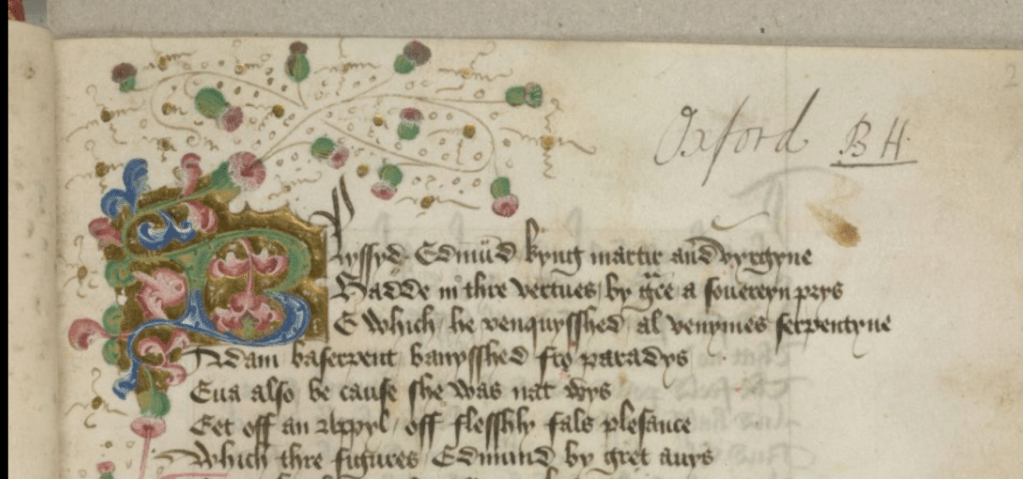 2
Oxford B H.
Blyssyd Edmu̅d kyng martir and vyrgyne
Hadde in thre vertues / by gr̅ce a souereyn prys
Be which he venquysshed al venymes serpentyne
Adam ba serpent banysshed fro paradys
Eua also be cause she was nat wys
Eet off an appyl / off flesshly fals plesance
Which thre figures Edmund by gret auys